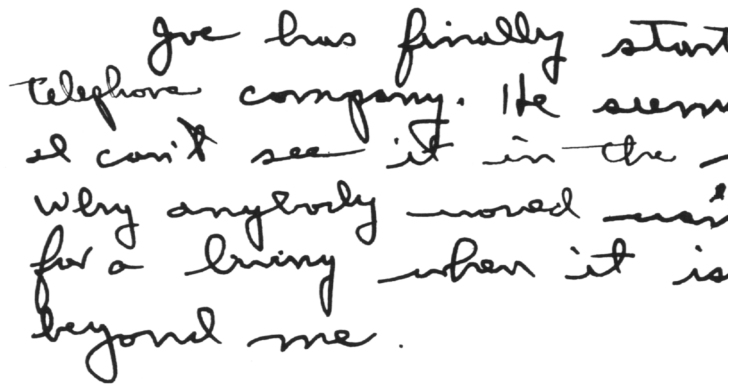 Joe has finally start
telephone company. He seem
I can't see it in the
Why anybody
for a living when it is
beyond me.